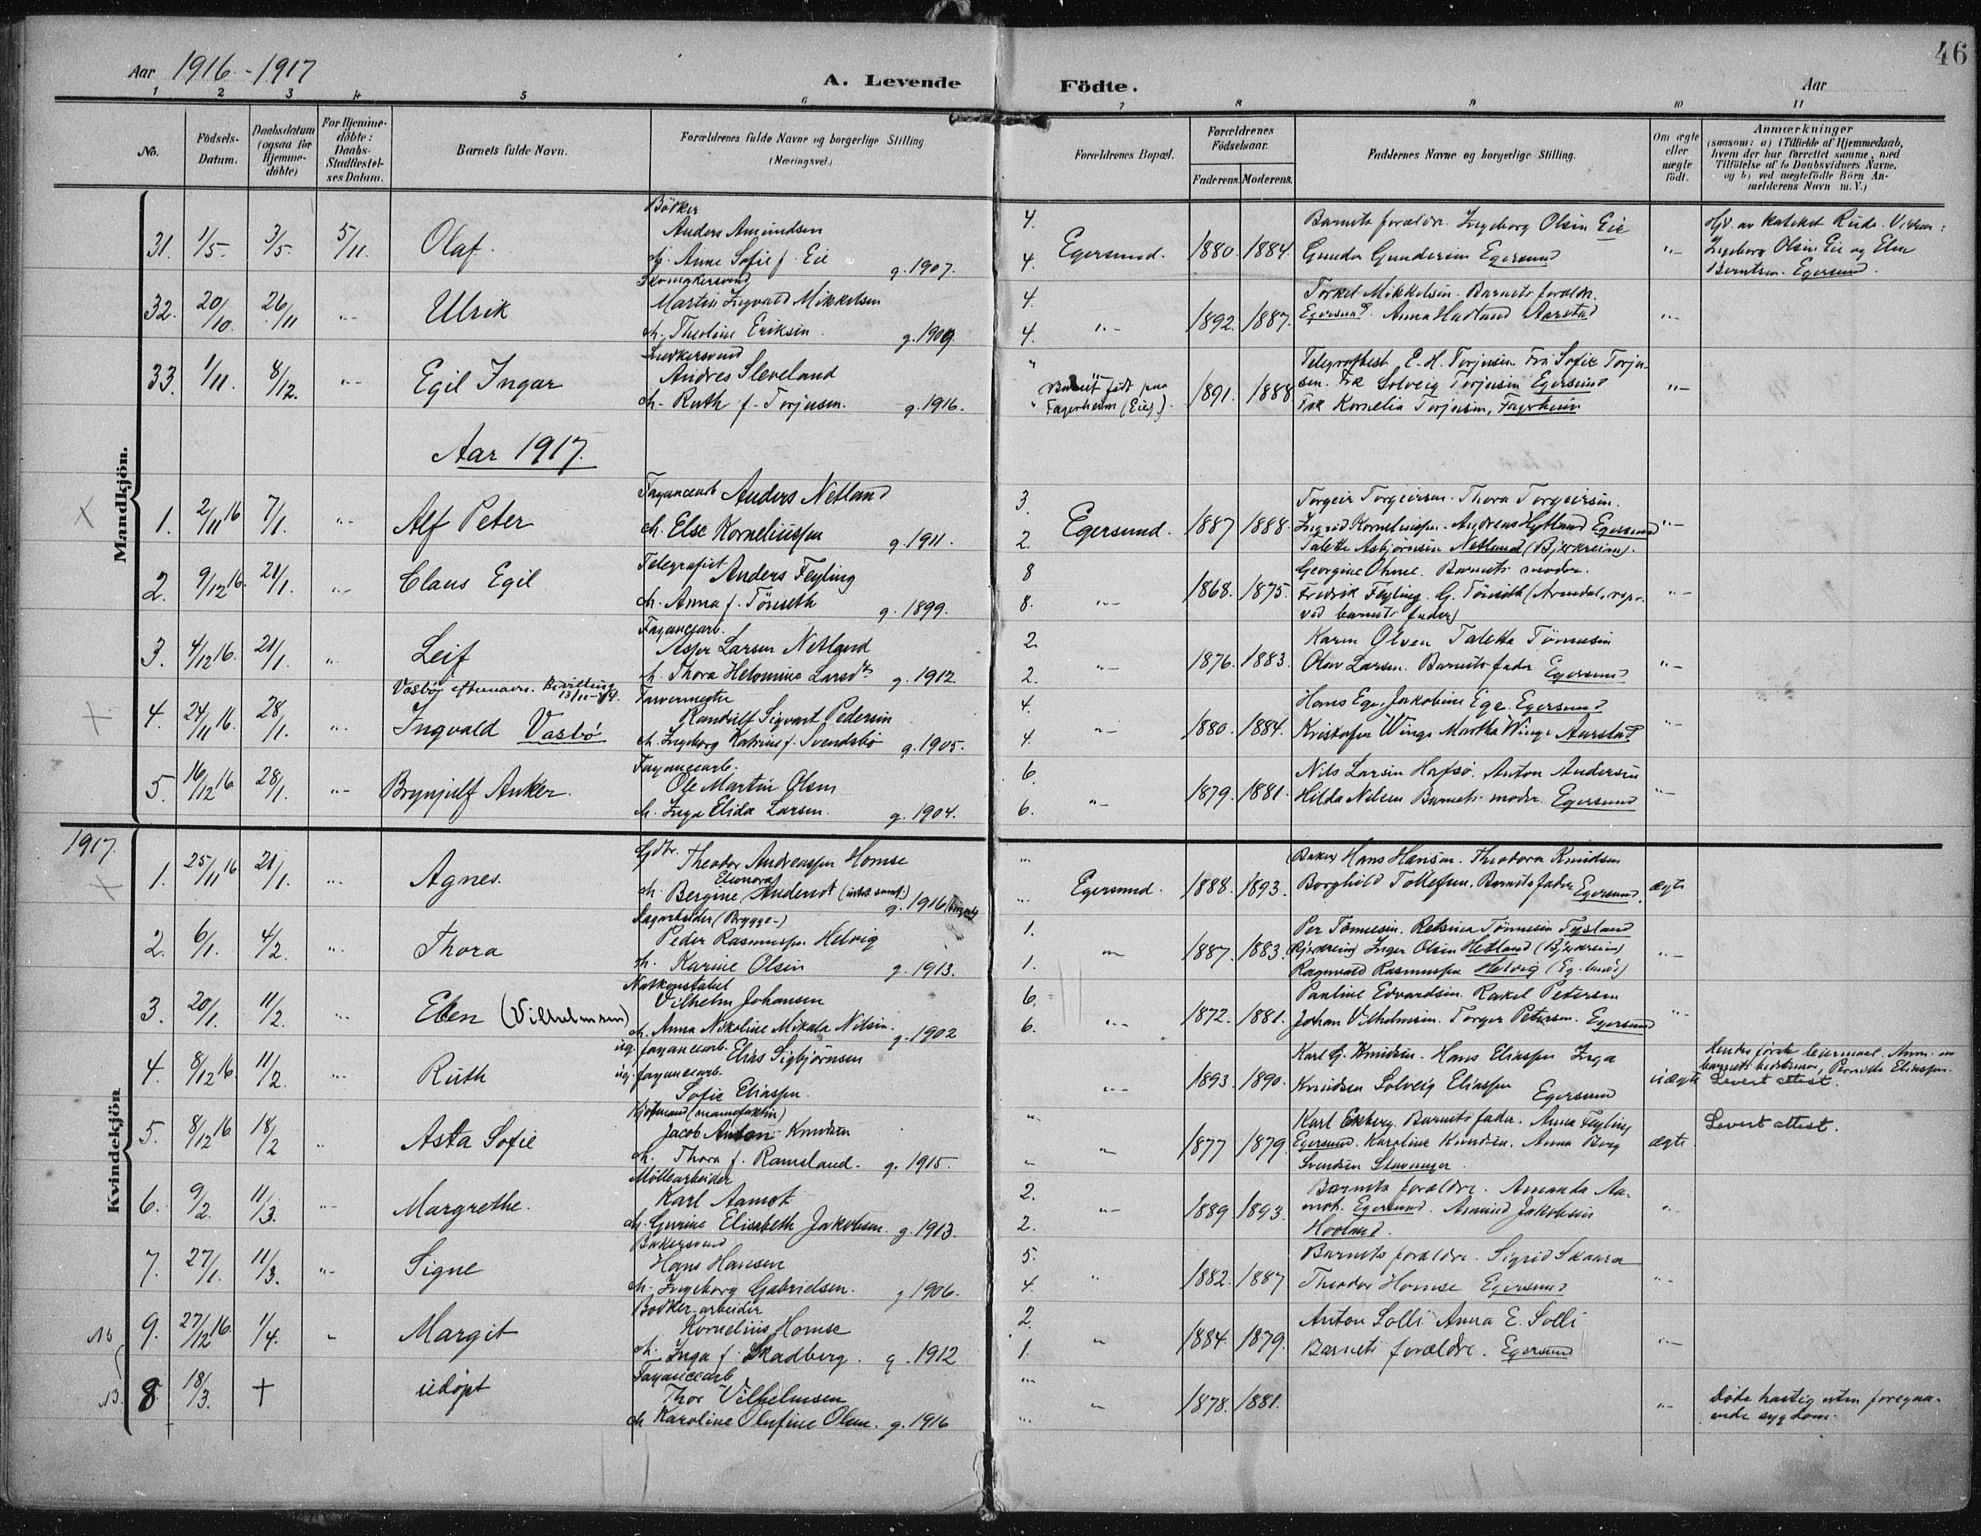 46
Aar 1916-1917
A. Levende Födte.
Aar
1 2 3 4 5 6 7 8 9 10 11
No.
Födsels-Datum.
Daabsdatum (ogsaa for Hjemme-döbte)
For Hjemme-döbte: Daabs-Stadfæstel-ses Datum.
Barnets fulde Navn.
Forældrenes fulde Navne og borgerlige Stilling
(Næringsvei.)
Forældrenes Bopæl.
Forældrenes Födselsaar.
Faderens. Moderens.
Faddernes Navne og borgerlige Stilling.
Om ægte eller uægte födt.
Anmærkninger
(saasom: a) i Tilfælde af Hjemmedaab,
hvem der har forrettet samme, med
Tilföielse af to Daabsvidners Navne.
og b) ved uægtefödte Börn An-
melderens Navn m. V.)
Mandkjön.
31. 1/5 3/5 5/11 Olaf.
Bödker
Anders Amundsen
Anne Sofie f. Eie g. 1907.
4. 4. Egersund. 1880. 1884.
Barnets forældre. Ingeborg Olsen Eie
Gunder Gundersen Egersund
Ingeborg Olsen Eie og Elen
Berntsen. Egersund.
32. 20/10. 26/11 Ulrik
Martin Ingvald Mikkelsen
Theoline Eriksen. g. 1909.
4. 4. 1892. 1887.
Torkel Mikkelsen. Barnets forældre.
Egersund. Anna Hadland Aarstad
33. 1/11. 8/12. Egil Ingar
Andres Sleveland
Ruth f. Torjusen. g. 1916.
Barnet født paa
Fagerheim (Eieg.). 1891. 1888
Telegrafbest. E. H. Torjusen. Fru Sofie Torju-
sen. Frk Solveig Torjusen Egersund
Frk Kornelia Torjusen, Fagerheim
Aar 1917.
1. 2/11 16 7/1. Alf Peter
Fayancearb Anders Netland
Else Korneliussen g. 1911.
3. 2. Egersund. 1887 1888.
Torgeir Torgeirsen. Thora Torgeirsen.
Ingrid Korneliussen. Andreas Hytland Egersund
Talette Asbjørnsen Netland (Bjerkreim).
2. 9/12 16. 21/1. Claus Egil
Telegrafist
Anders Feyling
Anna f. Tönseth g. 1899.
8 8. 1868. 1875.
Georgine Ohme. Barnets moder.
Fredrik Feyling. G. Tönseth (Arendal, repr.
ved barnets fader)
3. 4/12 16. 21/1. Leif
Fayancearb.
Larsen Netland
Thora Helomine g. 1912.
2. 2. 1876. 1883.
Karen Olsen Taletta Tönnesen
Olav Larsen. Barnets fader Egersund
4. 24/11 16. 28/1. Ingvald Vasbö
Vasbö efternavn. Bevilling
Farvermester
Randulf Sigvart Pedersen
Ingeborg Katrine f. Svendsbö g. 1905.
4. 4. 1880. 1884.
Hans Ege. Jakobine Ege. Egersund
Kristofer Winge Martha Winge Aarstad
5. 16/12 16 28/1. Brynjulf Anker.
Fayancearb.
Ole Martin Olsen
Inga Elida Larsen. g. 1904.
6. 6. 1879. 1881.
Nils Larsen Hafsö. Anton Andersen
Hilda Nilsen Barnets moder. Egersund
1917.
Kvindekjön
1. 25/11 16 21/1. Agnes.
Gdbr. Theodor Andreassen Homse
Eleonora
Bergine g. 1916
Egersund. 1888. 1893.
Baker Hans Hansen. Theodora Knudsen
Borghild Tollefsen. Barnets fader Egersund. ægte
2. 6/1. 4/2. Thora
Sagarbeider (Brygge-)
Peder Rasmussen Helvig
Karine Olsen g. 1913.
1. 1. 1887. 1883.
Per Tönnesen. Retsina Tönnesen Tysland
(Bjerkreim) Inger Olsen Hetland (Bjerkreim)
Ragnvald Rasmussen Helvig (Eg. lands)
3. 20/1. 11/2. Eben (Vilhelmsen)
Natkonstabel
Vilhelm Johansen
Anna Nikoline Mikala Nilsen. g. 1902
6. 6. 1872. 1881.
Pauline Edvardsen. Rakel Petersen
Johan Vilhelmsen. Torger Petersen. Egersund
4. 8/12 16. 11/2. Ruth
ug. fayancearb. Elias Sigbjörnsen
ug. fayancearb.
Sofie Eliassen.
1893. 1890.
Karl G. Knudsen. Hans Eliassen Inga
Knudsen Solveig Eliassen Egersund
uægte
Hendes første leiermaal. Anm. av
barnets bedstemor, Pernille Eliassen.
Levert attest.
5. 8/12 16 18/2 Asta Sofie
Kjöbmand (manufaktur)
Jacob Anton Knudsen
Thora f. Ramsland. g. 1915.
1877 1879.
Karl Exberg. Barnets fader. Anna Feyling
Egersund. Karoline Knudsen. Anna Berg
Svendsen Stavanger.
ægte
Levert attest.
6. 9/2. 11/3. Margrethe.
Möllearbeider
Karl Aamot
Gurine Elisabeth Jakobsen. g. 1913.
2. 2. 1889 1893.
Barnets forældre. Amanda Aa-
mot. Egersund. Amund Jakobsen
Hovland.
7. 27/1. 11/3. Signe
Bakersvend
Hans Hansen
Ingeborg Gabrielsen. g 1906.
5. 4. 1882. 1887
Barnets forældre. Sigrid Skaara
Theodor Homse Egersund
9. 27/12 16. 1/4. Margit
Bödker-arbeider
Kornelius Homse
Inga f. Skadberg. g. 1912
2. 1. 1884. 1879.
Anton Solli Anna E. Solli
Barnets forældre. Egersund
8 18/3. † udöpt
Fayancearb
Thor Vilhelmsen
Karoline Olufine Olsen. g. 1916
1878. 1881.
Døde hastig uten foregaa-
ende sygdom.